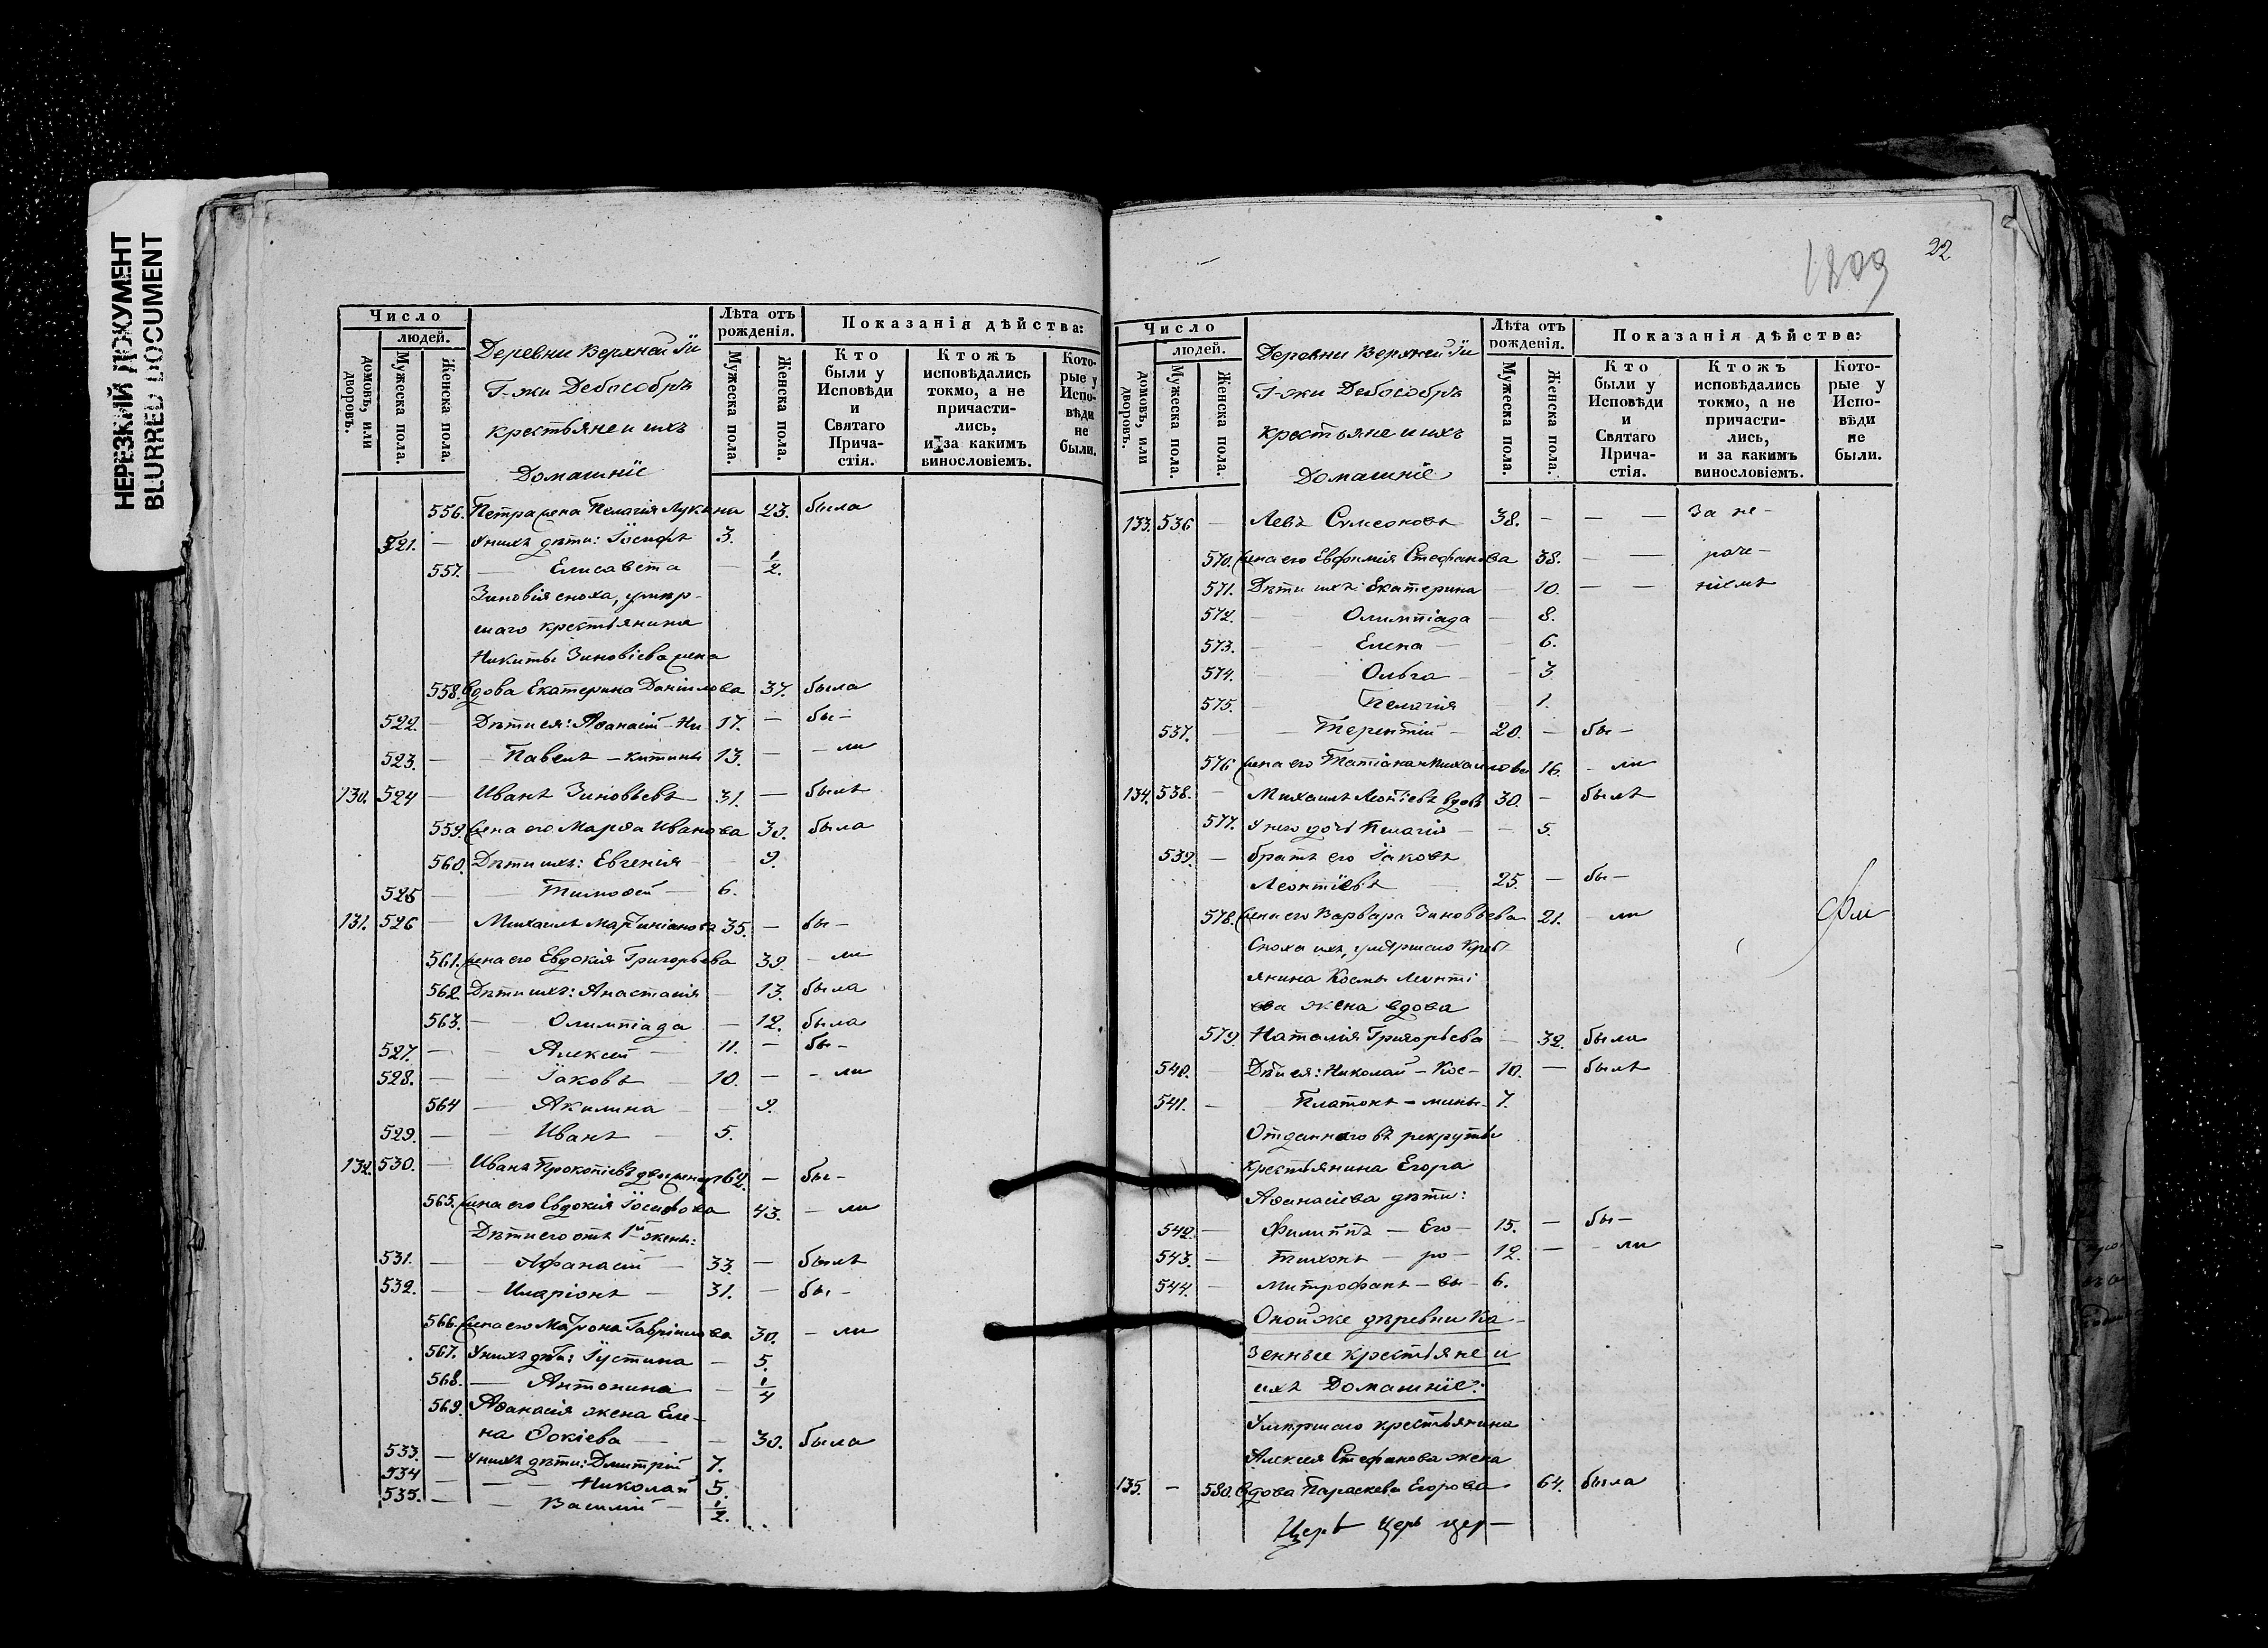 НЕРЕЗКИЙ ДОКУМЕНТ
BLURRED DOCUMENT
Число
людей.
домовъ, или дворовъ.
Мужеска пола.
Женска пола.
Деревни Верхней
Г-жи Дебособръ
крестьяне и ихъ
Домашніе
Лѣта отъ рожденія.
Мужеска пола.
Женска пола.
Показанія дѣйства:
Кто были у Исповѣди и Святаго Причастія.
Ктожъ исповѣдались токмо, а не причастились, и за какимъ винословіемъ.
Которые у Исповѣди не были.
556. Петра жена Пелагія Лукина 23. была
521. — У нихъ дѣти: Іосифъ 3.
557. — Елисавета — 1/2.
Зиновія сноха, умер-
шаго крестьянина
Никиты Зиновіева жена
558. вдова Екатерина Даніилова 37. была
522. — Дѣти ея: Аѳанасій — Ни 17. — бы-
523. — Павелъ — китины 13. — — ли
130. 524 — Иванъ Зиновьевъ 31. — былъ
559. жена его Марѳа Иванова 30. была
560. Дѣти ихъ: Евгенія — 9.
525 — Тимоѳей — 6.
131. 526 — Михаилъ Мартиніанова 35. — бы-
561. жена его Евдокія Григорьева 39. — ли
562. Дѣти ихъ: Анастасія — 13. была
563. — Олимпіада — 12. была
527. — Алексій — 11. — бы-
528. — Іаковъ — 10. — — ли
564 — Акилина — 9.
529. — Иванъ — 5.
132. 530. — Иванъ Прокопіевъ 62. — бы-
565. жена его Евдокія Іосифова 43. — ли
Дѣти его отъ 1й жены:
531. — Афанасій — 33. — былъ
532. — Иларіонъ — 31. — бы-
566. жена его Матрона Гавріилова 30. — ли
567. У нихъ дѣти: Іустина — 5.
568. — Антонина — 1/4
569. Аѳанасія жена Еле-
на Ѳокіева — — 30. была
533. — У нихъ дѣти: Дмитрій 7.
534 — — Николай 5.
535. — — Василій — 1/2.
1809
22
Число
людей.
домовъ, или дворовъ.
Мужеска пола.
Женска пола.
Деревни Верхней
Г-жи Дебособръ
крестьяне и ихъ
Домашніе
Лѣта отъ рожденія.
Мужеска пола.
Женска пола.
Показанія дѣйства:
Кто были у Исповѣди и Святаго Причастія.
Ктожъ исповѣдались токмо, а не причастились, и за какимъ винословіемъ.
Которые у Исповѣди не были.
133. 536 — Левъ Сумеоновъ 38. — — — За не-
570. жена его Евфимія Стефанова 38. — — раче-
571. Дѣти ихъ: Екатерина — 10. — — ніемъ
572. — Олимпіада — 8.
573. — Елена — 6.
574. — Ольга — 3.
575. — Пелагія — 1.
537. — — Терентій — 20. — бы-
576 жена его Татіана Михаилова 16. — ли
134. 538. — Михаилъ Леонтіевъ вдовъ 30. — былъ
577. У него дочь Пелагія — — 5.
539. — братъ его Іаковъ
Леонтіевъ 25. — бы-
578. жена его Варвара Зиновьева 21. — ли
Сноха ихъ, умершаго крест
янина Космы Леонті
ева жена вдова
579. Наталія Григорьева — 32. была
540. — Дѣти ея: Николай — Кос- 10. — былъ
541. — Платонъ — мины- 7.
Отданнаго въ рекруты
крестьянина Егора
Аѳанасіева дѣти:
542. — Филиппъ — Его- 15. — бы-
543. — Тихонъ — ро- 12. — — ли
544. — Митрофанъ — вы- 6.
Оной же деревни Ка-
зенные крестьяне и
ихъ Домашніе:
Умершаго крестьянина
Алексія Стефанова жена
135. — 580. вдова Параскева Егорова 64. была